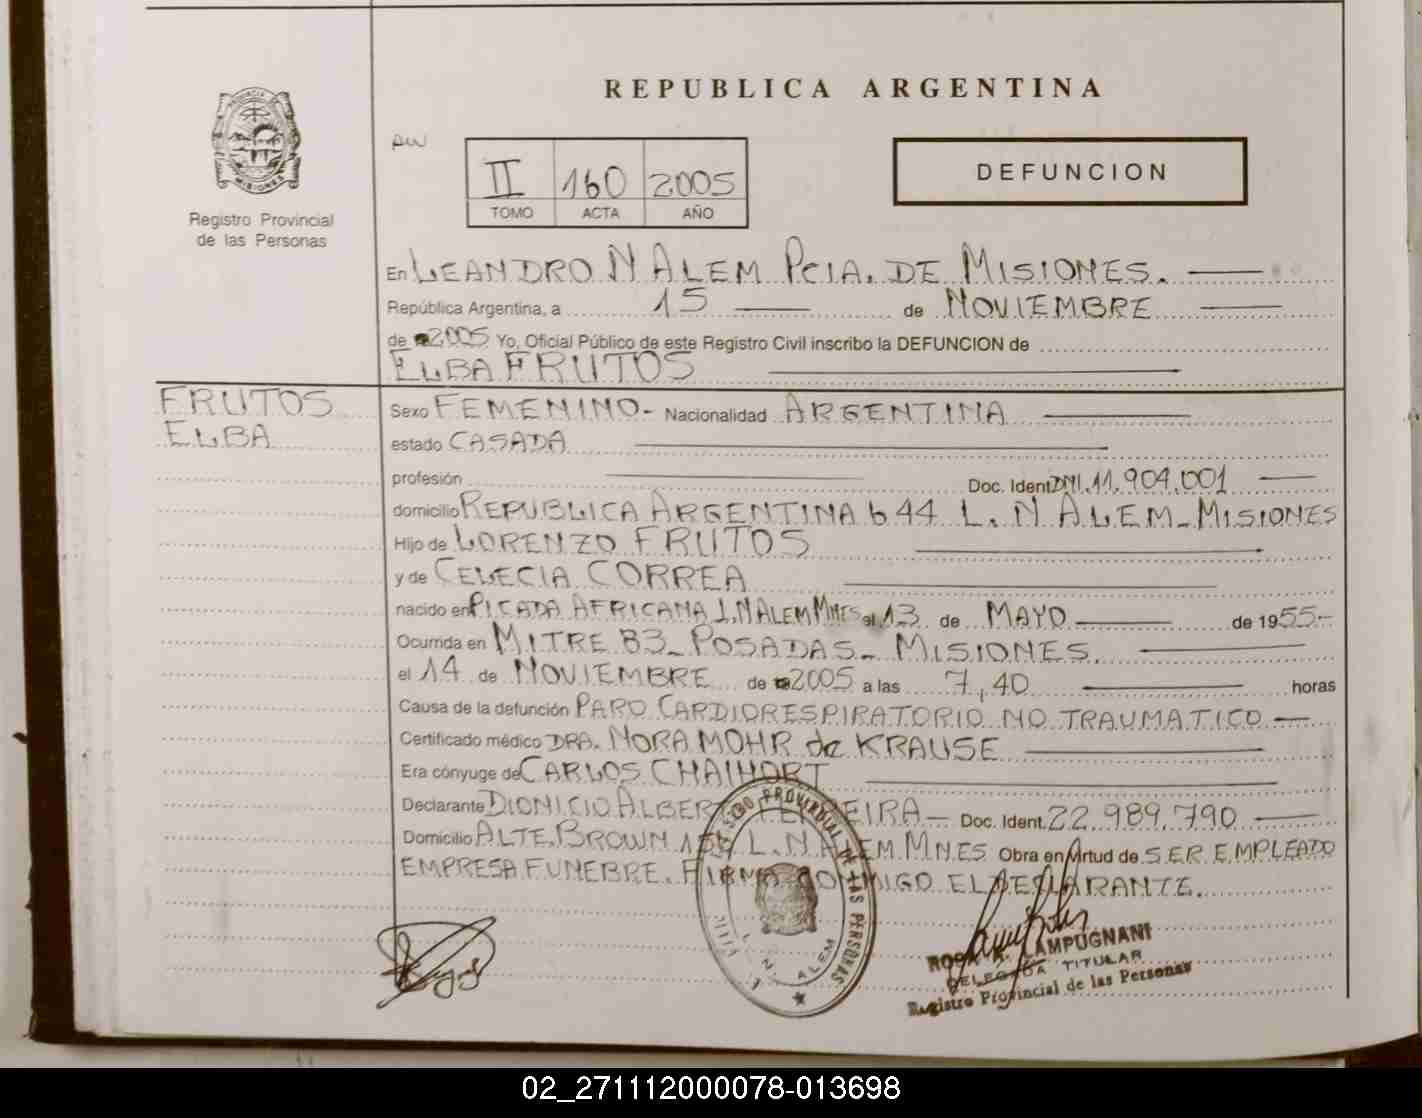 REPUBLICA ARGENTINA
PROVINCIA DE
MISIONES
Registro Provincial
de las Personas
II 160 2005
TOMO ACTA AÑO
DEFUNCION
En LEANDRO N ALEM PCIA. DE MISIONES.
República Argentina, a 15 de NOVIEMBRE
de 2005 Yo, Oficial Público de este Registro Civil inscribo la DEFUNCION de
ELBA FRUTOS
FRUTOS
ELBA
Sexo FEMENINO- Nacionalidad ARGENTINA
estado CASADA
profesión Doc. Ident DNI.11.904.001
domicilio REPUBLICA ARGENTINA 644 L. N ALEM-MISIONES
Hijo de LORENZO FRUTOS
y de CELECIA CORREA
nacido en PICADA AFRICANA L.N ALEM MNES el 13 de MAYO de 1955-
Ocurrida en MITRE 83- POSADAS- MISIONES.
el 14 de NOVIEMBRE de 2005 a las 7,40 horas
Causa de la defunción PARO CARDIORESPIRATORIO NO TRAUMATICO
Certificado médico DRA. NORA MOHR de KRAUSE
Era cónyuge de CARLOS CHAIHORT
Declarante DIONICIO ALBERTO Doc. Ident. 22.989.790
Domicilio ALTE. BROWN L. N ALEM. MNES Obra en virtud de SER EMPLEADO
EMPRESA FUNEBRE. FIRMA CONMIGO EL DECLARANTE.
REGISTRO PROVINCIAL DE LAS PERSONAS
L. N. ALEM
ROSA LAMPUGNANI
DELEGADA TITULAR
Registro Provincial de las Personas
02_271112000078-013698